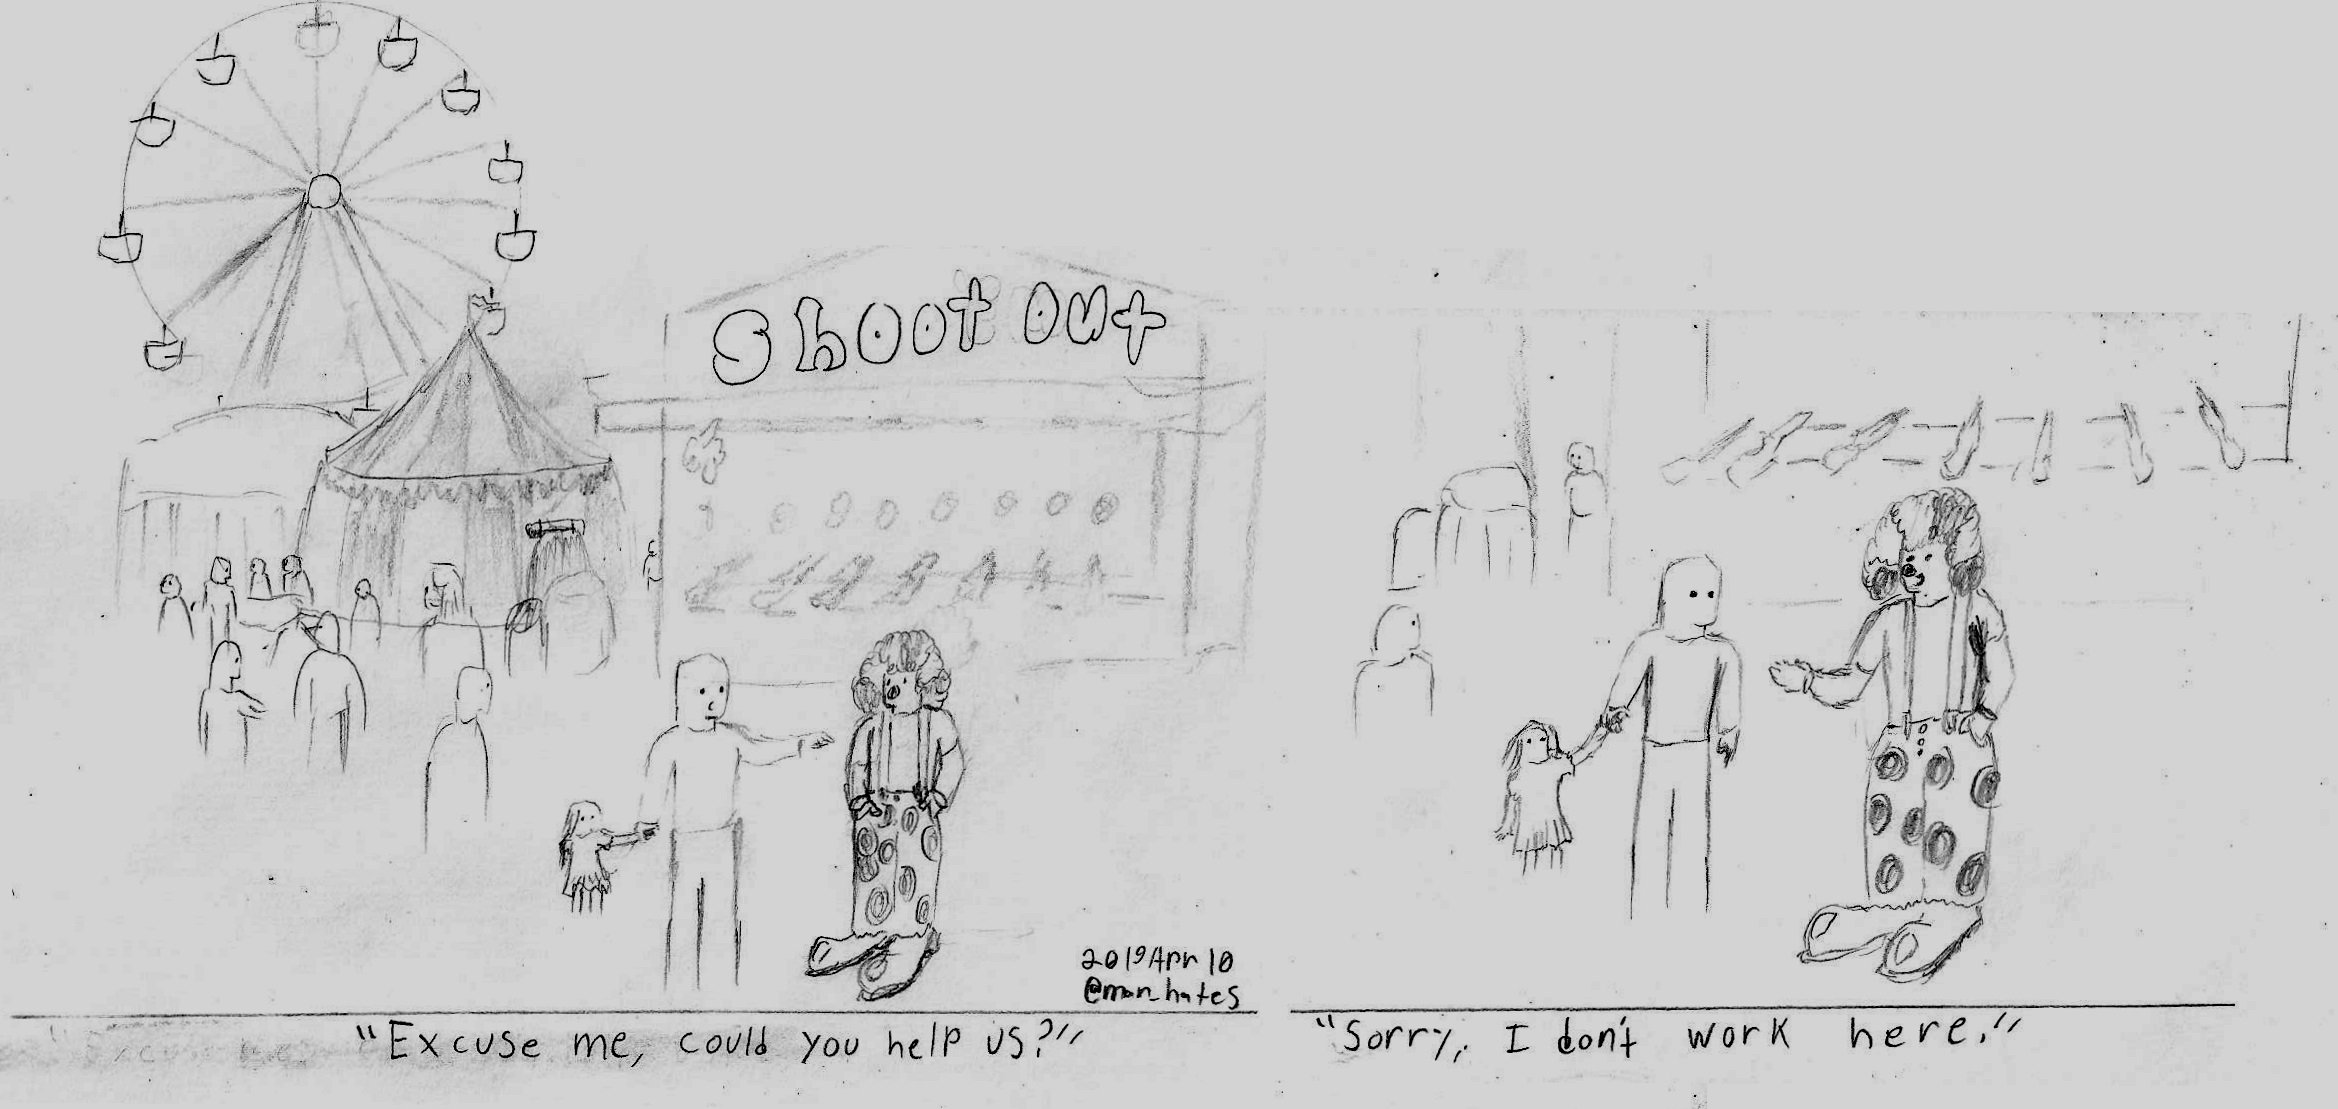 Shoot Out
2019 Apr 10
@man_hates
"Excuse me, could you help us?"
"Sorry, I don't work here."